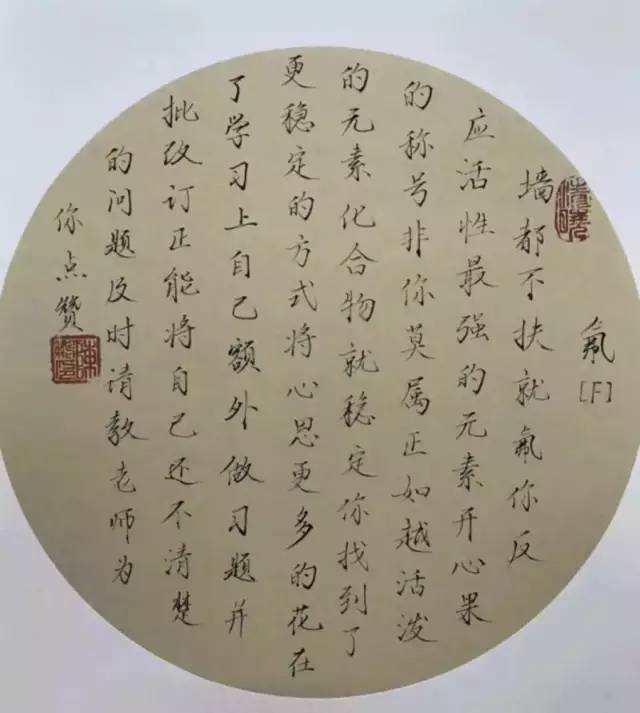 氟
[F]
墙都不扶就氟你反
应活性最强的元素开心果
的称号非你莫属正如越活泼
的元素化合物就稳定你找到了
更稳定的方式将心思更多的花在
了学习上自己额外做习题并
批改订正能将自己还不清楚
的问题及时请教老师为
你点赞